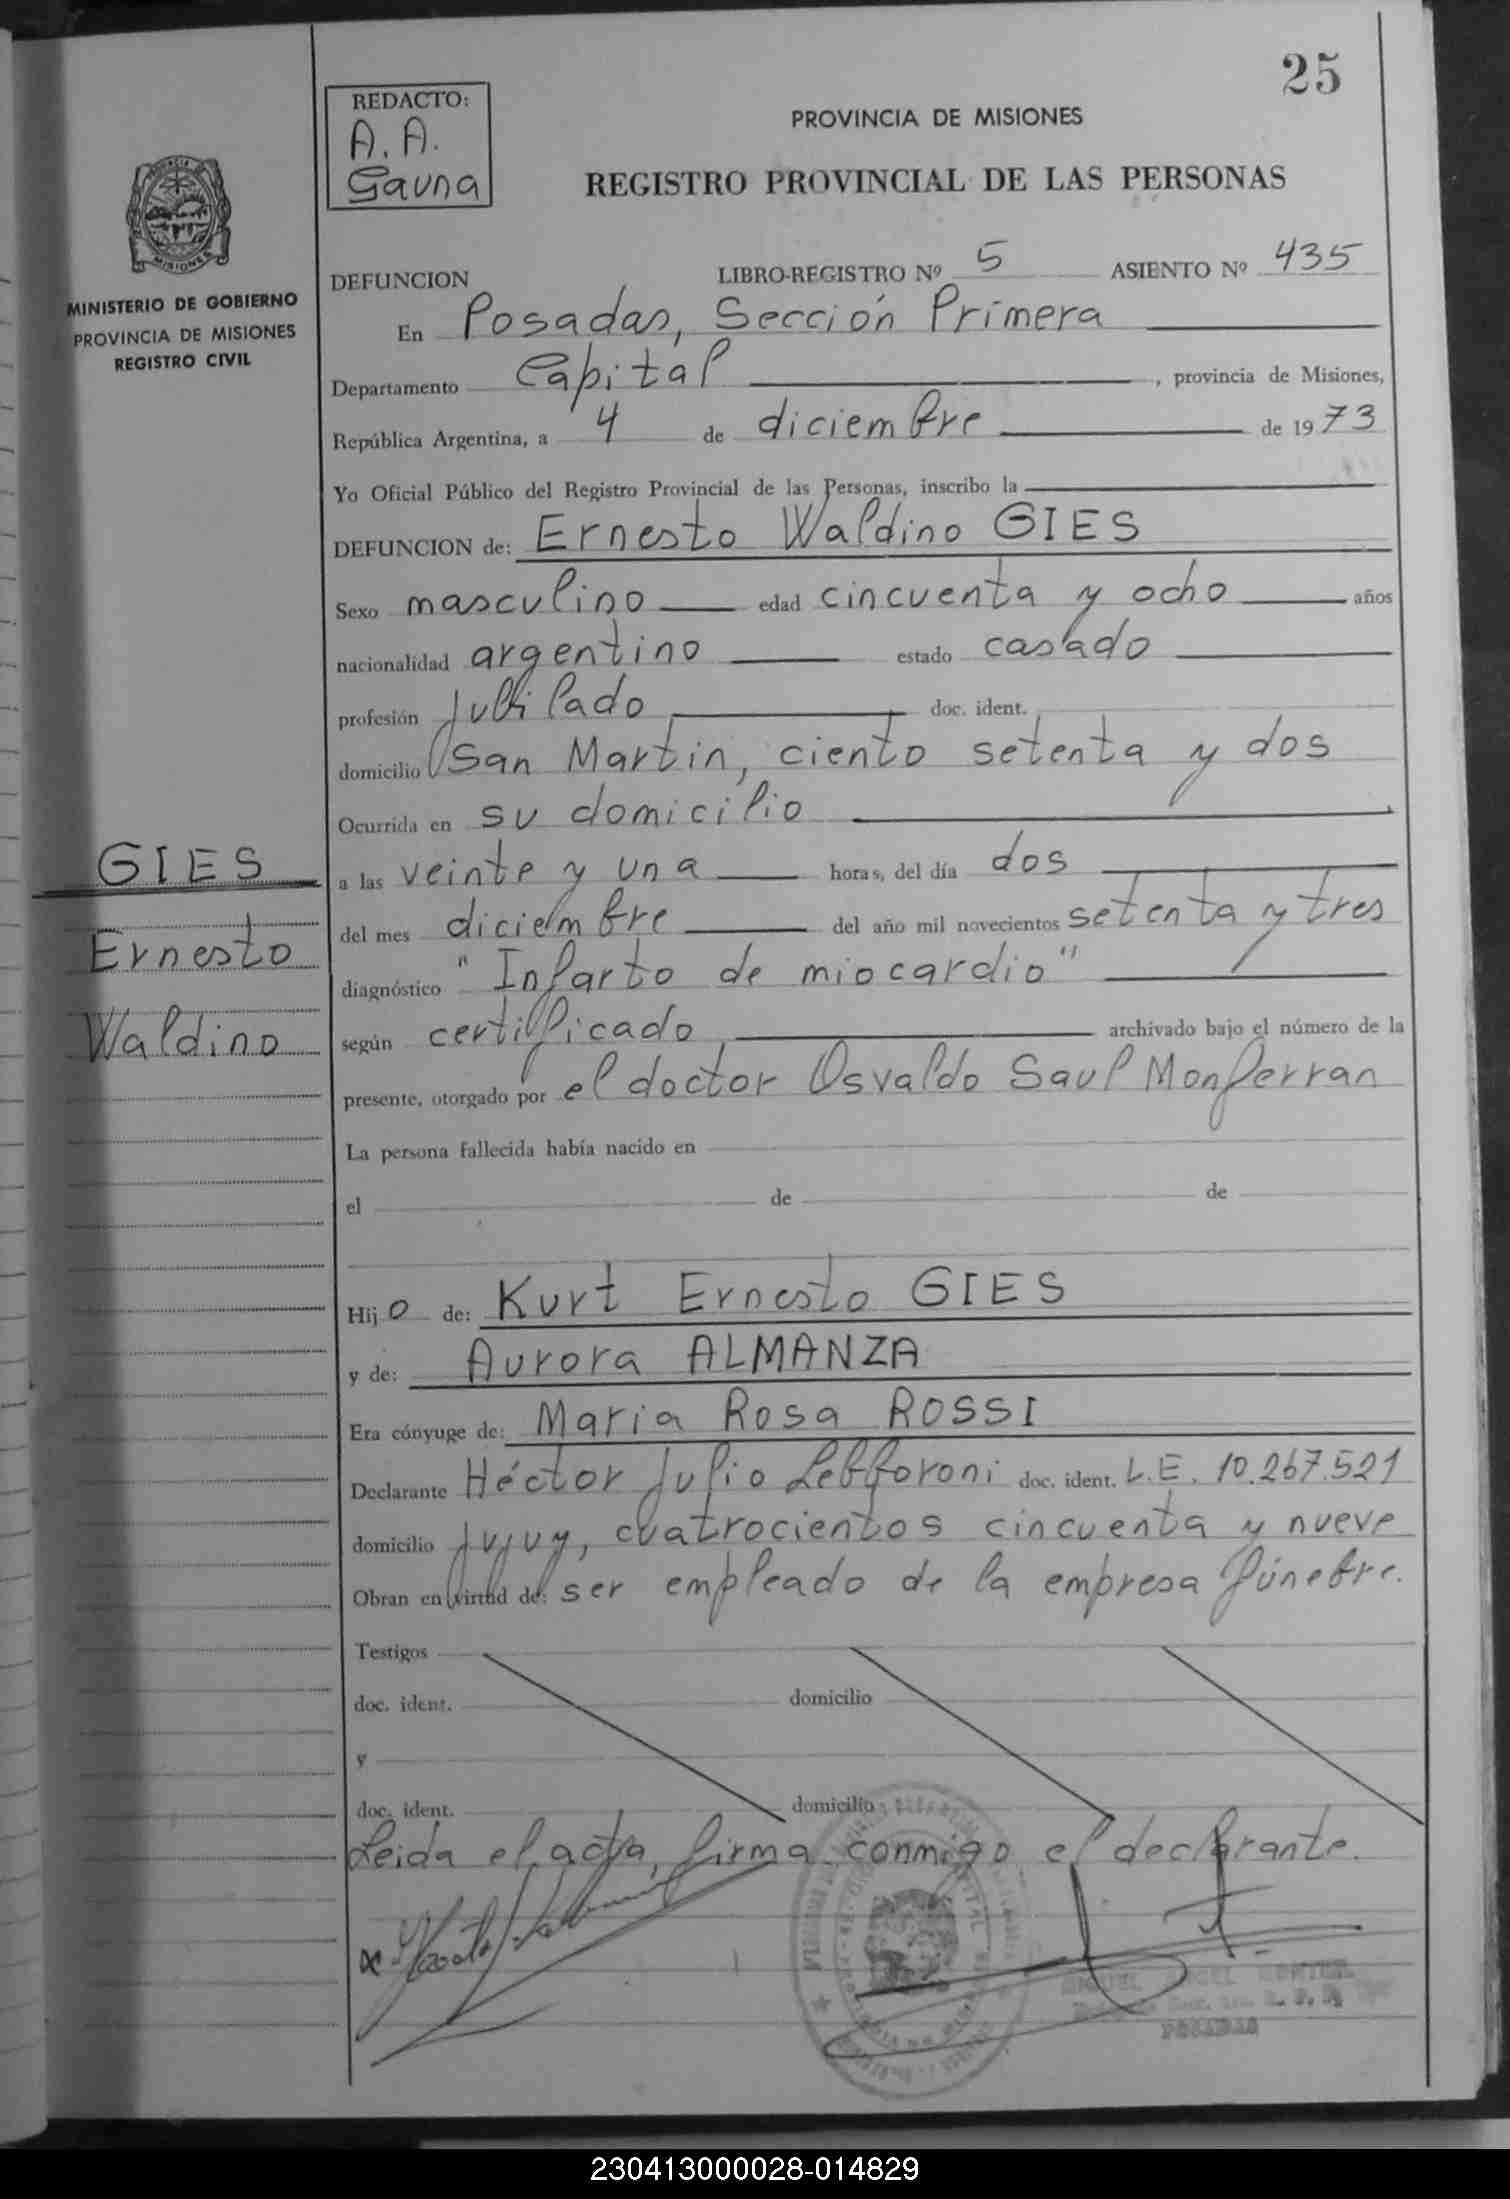 25
REDACTO:
A. A.
Gauna
PROVINCIA DE MISIONES
REGISTRO PROVINCIAL DE LAS PERSONAS
MISIONES
MINISTERIO DE GOBIERNO
PROVINCIA DE MISIONES
REGISTRO CIVIL
DEFUNCION LIBRO-REGISTRO Nº 5 ASIENTO Nº 435
En Posadas, Sección Primera
Departamento Capital, provincia de Misiones,
República Argentina, a 4 de diciembre de 1973
Yo Oficial Público del Registro Provincial de las Personas, inscribo la
DEFUNCION de: Ernesto Waldino GIES
Sexo masculino edad cincuenta y ocho años
nacionalidad argentino estado casado
profesión Jubilado doc. ident.
domicilio San Martin, ciento setenta y dos
Ocurrida en su domicilio
GIES
Ernesto
Waldino
a las veinte y una horas, del día dos
del mes diciembre del año mil novecientos setenta y tres
diagnóstico "Infarto de miocardio"
según certificado, archivado bajo el número de la
presente, otorgado por el doctor Osvaldo Saul Monferran
La persona fallecida había nacido en
el de de
Hijo de: Kurt Ernesto GIES
y de: Aurora ALMANZA
Era cónyuge de: Maria Rosa ROSSI
Declarante Héctor Julio doc. ident. L.E. 10.267.521
domicilio Jujuy, cuatrocientos cincuenta y nueve
Obran en virtud de: ser empleado de la empresa fúnebre.
Testigos
doc. ident. domicilio
y
doc. ident. domicilio
Leida el acta, firma conmigo el declarante.
POSADAS
230413000028-014829